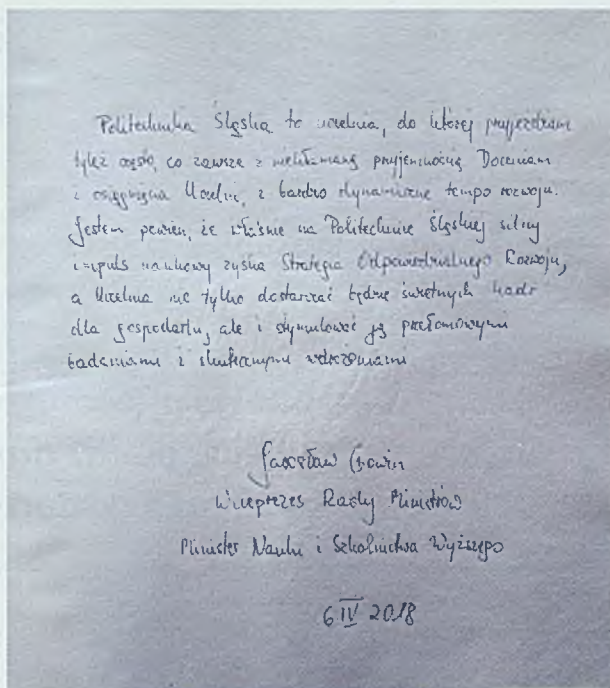 Politechnika Śląska to uczelnia, do której przyjeżdżam
tyleż często, co zawsze z niekłamaną przyjemnością. Doceniam
i osiągnięcia Uczelni, i bardzo dynamiczne tempo rozwoju.
Jestem pewien, że właśnie na Politechnice Śląskiej silny
impuls naukowy zyska Strategia Odpowiedzialnego Rozwoju,
a Uczelnia nie tylko dostarczać będzie świetnych kadr
dla gospodarki, ale i stymulować ją przełomowymi
badaniami i skutecznymi wdrożeniami
Jarosław Gowin
Wiceprezes Rady Ministrów
Minister Nauki i Szkolnictwa Wyższego
6 IV 2018